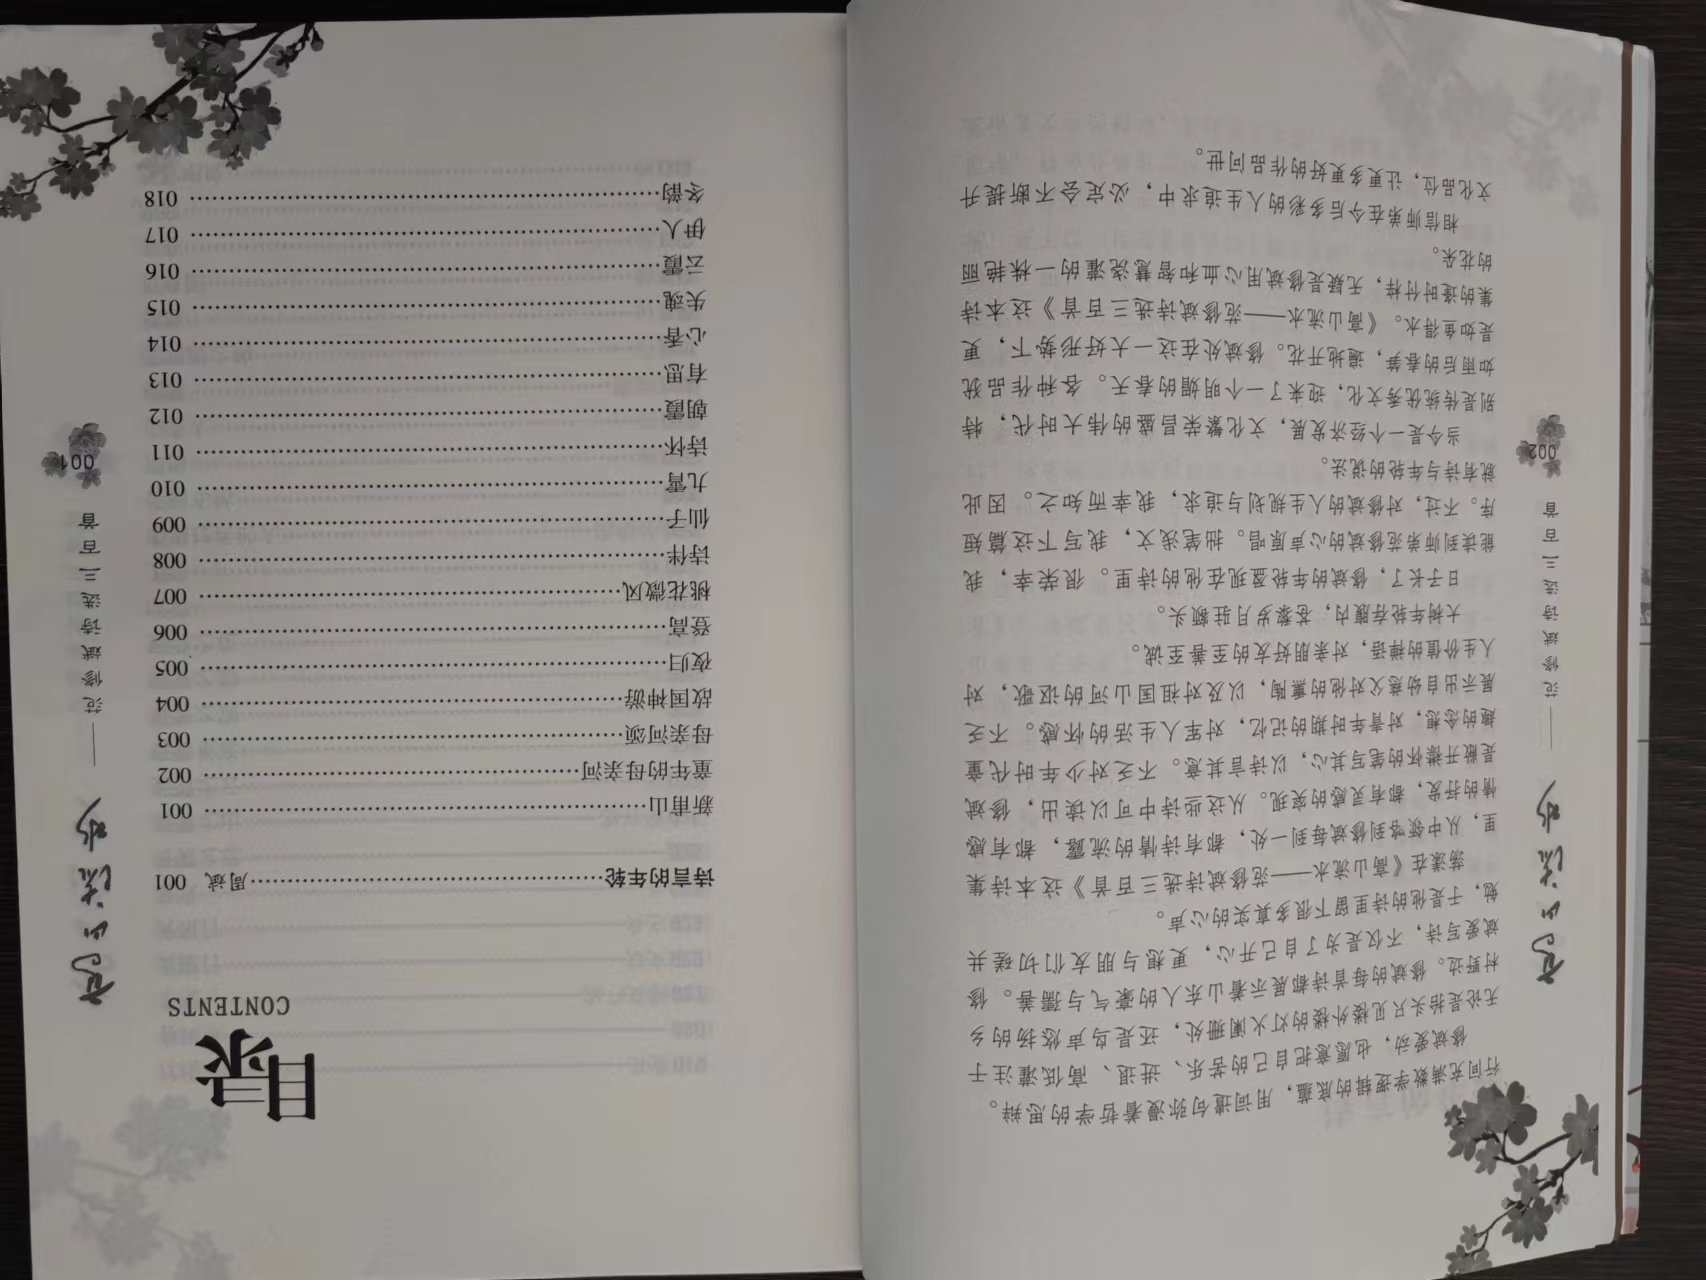 高山流水
——范修斌诗选三百首
002
行间充满数学逻辑的底蕴，用词遣句弥漫着哲学的思辩。
修斌爱动，也愿意把自己的苦乐、进退、高低灌注于
无论是抬头只见楼外楼的灯火阑珊处，还是鸟声悠扬的乡
村野边。修斌的每首诗都展示着山东人的豪气与孺善。修
斌爱写诗，不仅是为了自己开心，更想与朋友们切磋共
勉，于是他的诗里留下很多真实的心声。
荡漾在《高山流水——范修斌诗选三百首》这本诗集
里，从中领略到修斌每到一处，都有诗情的流露，都有感
情的抒发，都有灵感的实现。从这些诗中可以读出，修斌
是敞开襟怀的笔写其心，以诗言其意。不乏对少年时代童
趣的念想，对青年时期的记忆，对军人生活的怀感。不乏
展示出自幼慈父对他的熏陶，以及对祖国山河的讴歌，对
人生价值的禅语，对亲朋好友的至善至诚。
大树年轮存腹内，苍黎岁月驻额头。
日子长了，修斌的年轮盈现在他的诗里。很荣幸，我
能读到师弟范修斌的心声原唱。拙笔浅文，我写下这篇短
序。不过，对修斌的人生规划与追求，我幸而知之。因此
就有诗与年轮的说法。
当今是一个经济发展，文化繁荣昌盛的伟大时代，特
别是传统优秀文化，迎来了一个明媚的春天。各种作品犹
如雨后的春笋，遍地开花。修斌处在这一大好形势下，更
是如鱼得水。《高山流水——范修斌诗选三百首》这本诗
集的逢时付梓，无疑是修斌用心血和智慧浇灌的一株艳丽
的花朵。
相信师弟在今后多彩的人生追求中，必定会不断提升
文化品位，让更多更好的作品问世。
目录
CONTENTS
诗言的年轮……………………………周斌 001
新甫山…………………………………… 001
童年的母亲河…………………………… 002
母亲河颂………………………………… 003
故国神游………………………………… 004
夜归……………………………………… 005
登高……………………………………… 006
桃花微风………………………………… 007
诗伴……………………………………… 008
仙子……………………………………… 009
九霄……………………………………… 010
诗怀……………………………………… 011
朝霞……………………………………… 012
有思……………………………………… 013
心香……………………………………… 014
失魂……………………………………… 015
云霞……………………………………… 016
伊人……………………………………… 017
冬韵……………………………………… 018
高山流水
——范修斌诗选三百首
001